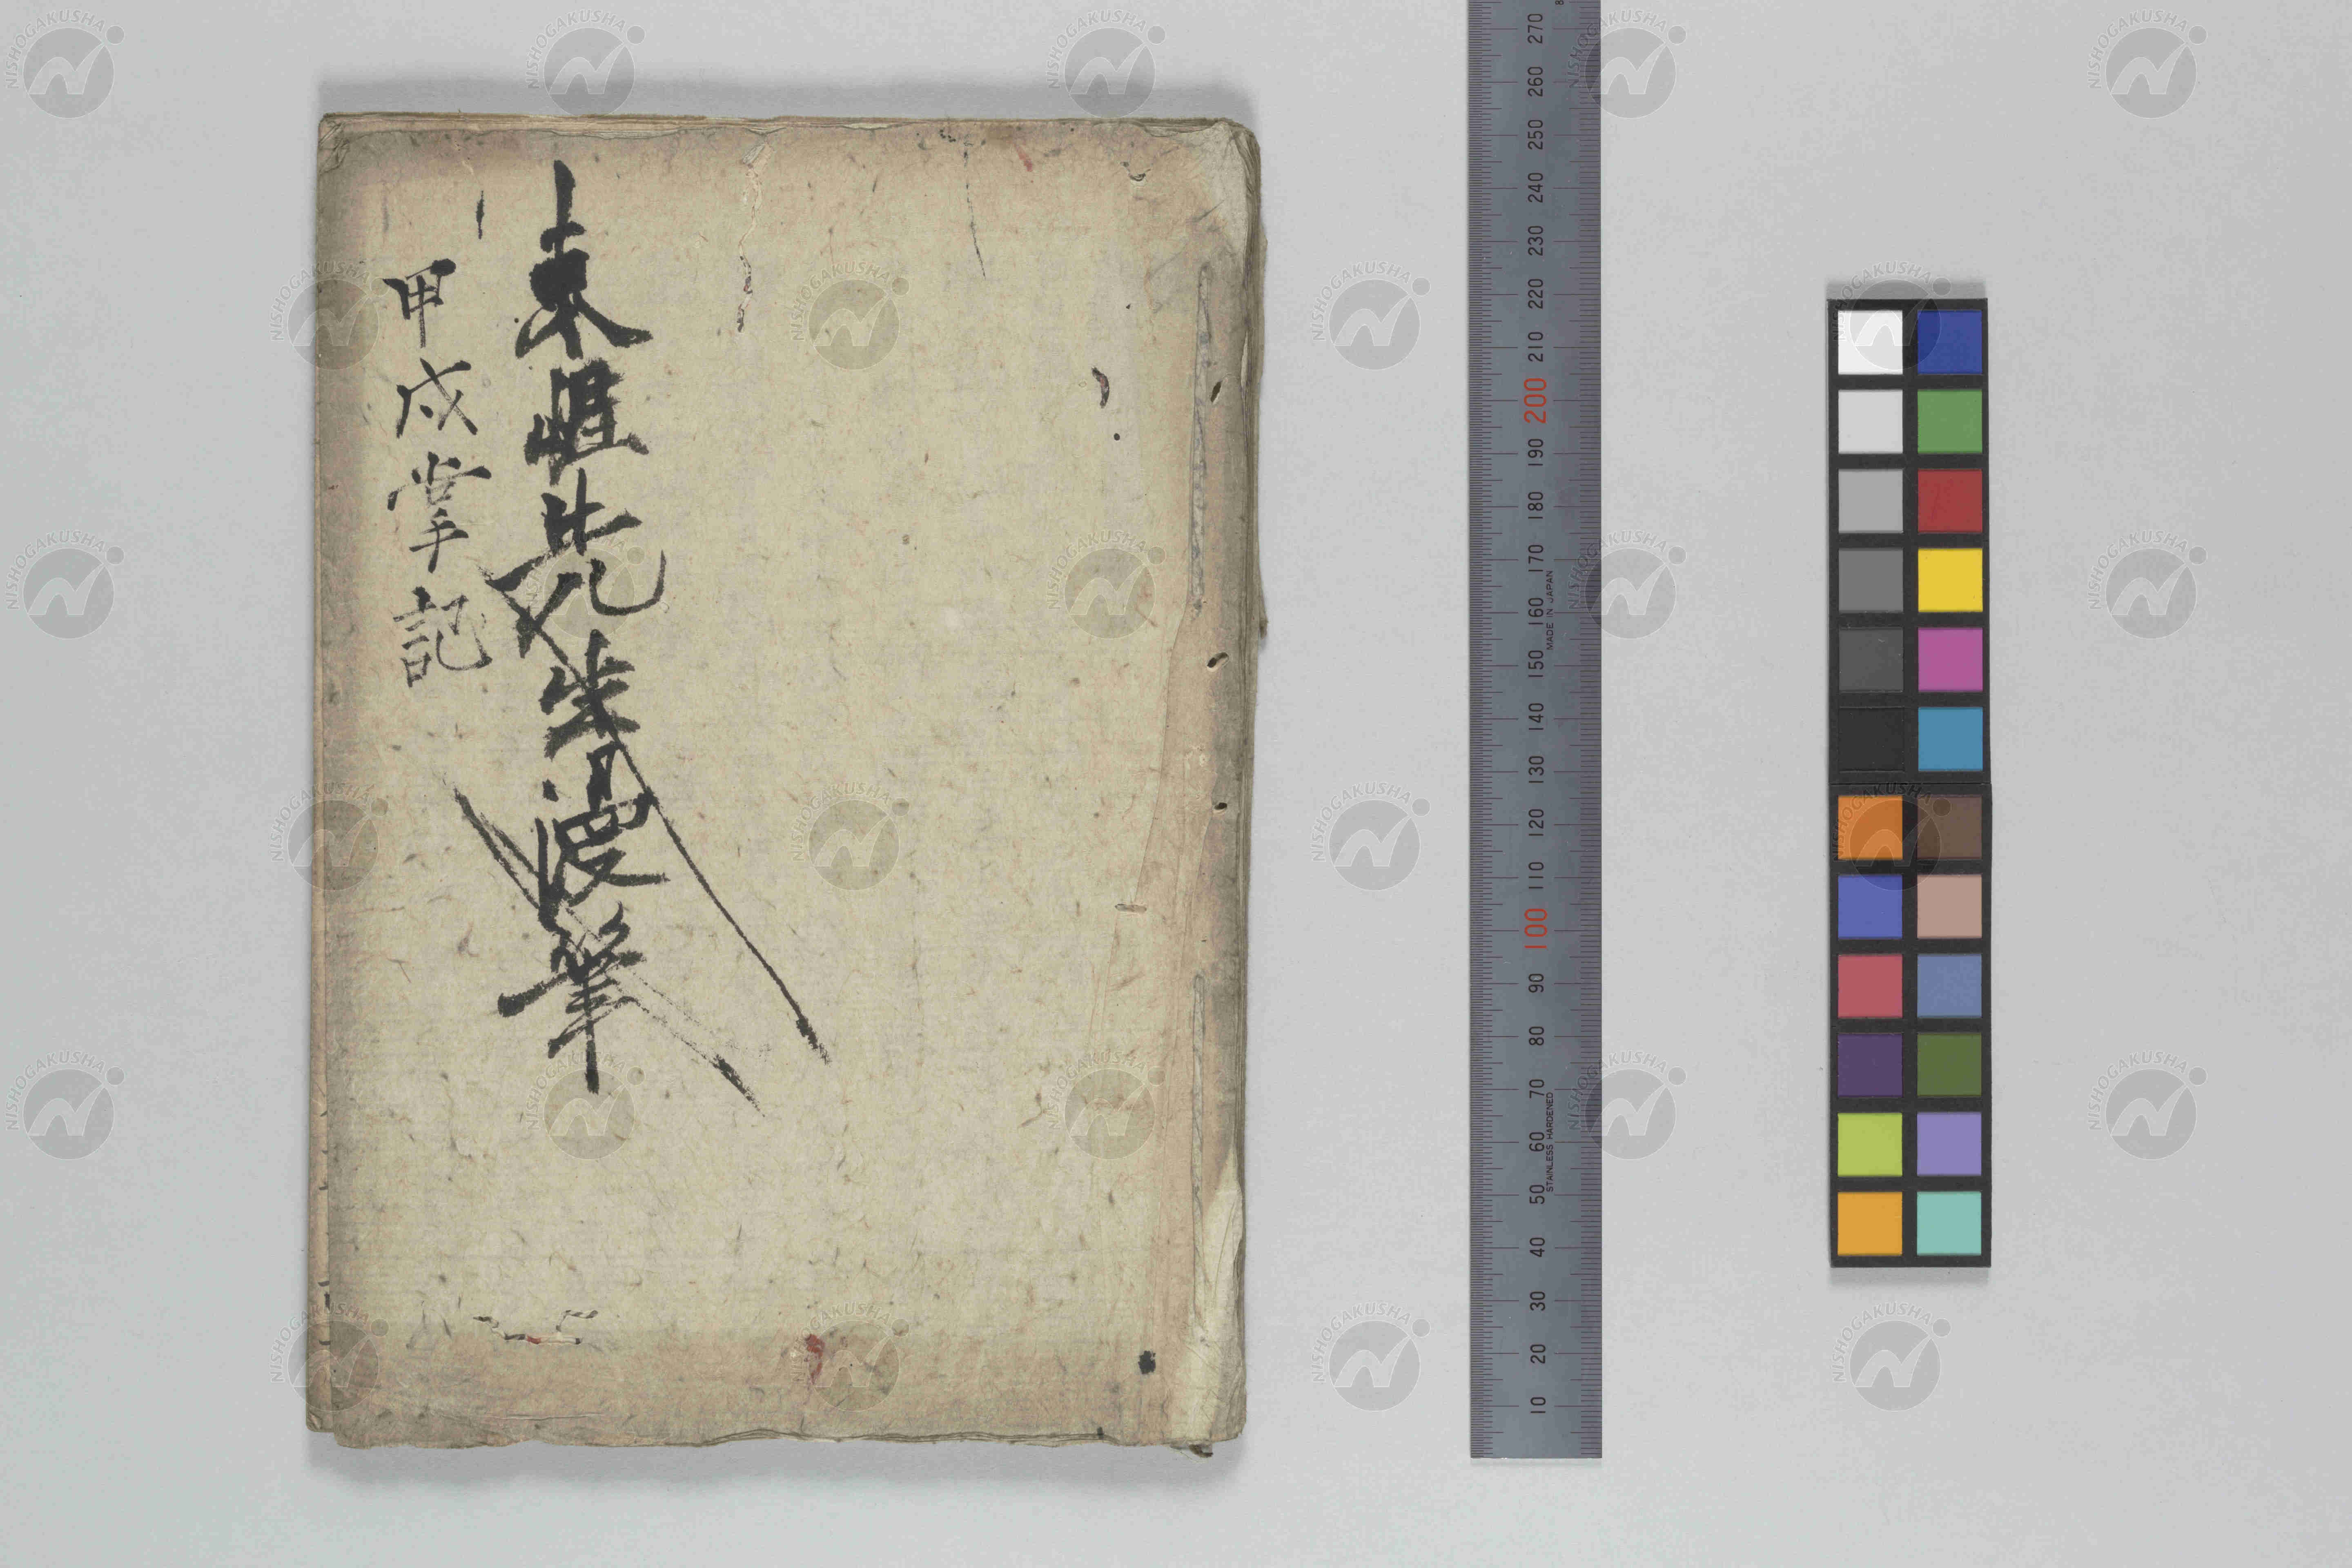 東崕先生漫筆
甲戌掌記
270
260
250
240
230
220
210
200
190
180
170
160
150
140
130
120
110
100
90
80
70
60
50
40
30
20
10
MADE IN JAPAN
STAINLESS HARDENED
NISHOGAKUSHA